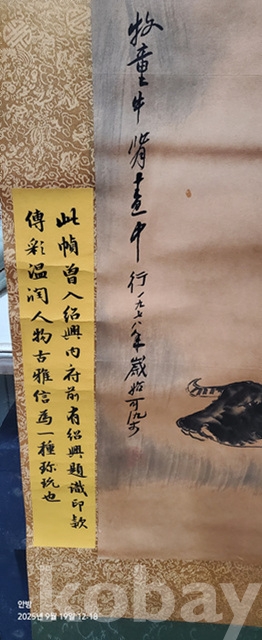 牧童牛背畫中行一九七八年歲始可染
此幀曾入紹興內府前有紹興題識印款
傳彩溫潤人物古雅信為一種珎玩也
안방
2025년 9월 19일 12:18
kobay